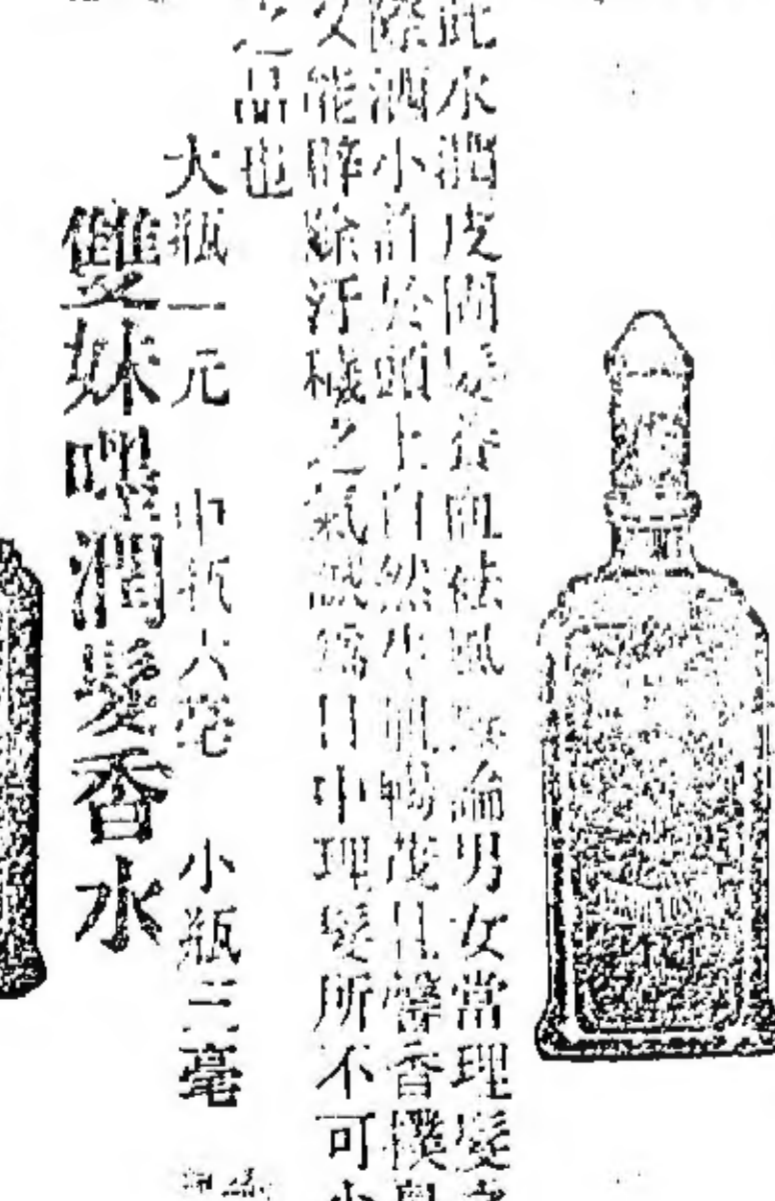 此水潤皮開髮養血祛風無論男女當理髮之
際洒小許於頭上自然生肌暢茂且馨香撲鼻
又能辟除汗穢之氣誠為日中理髮所不可少
之品也
大瓶一元 中瓶六毫 小瓶三毫
雙妹嘿潤髮香水